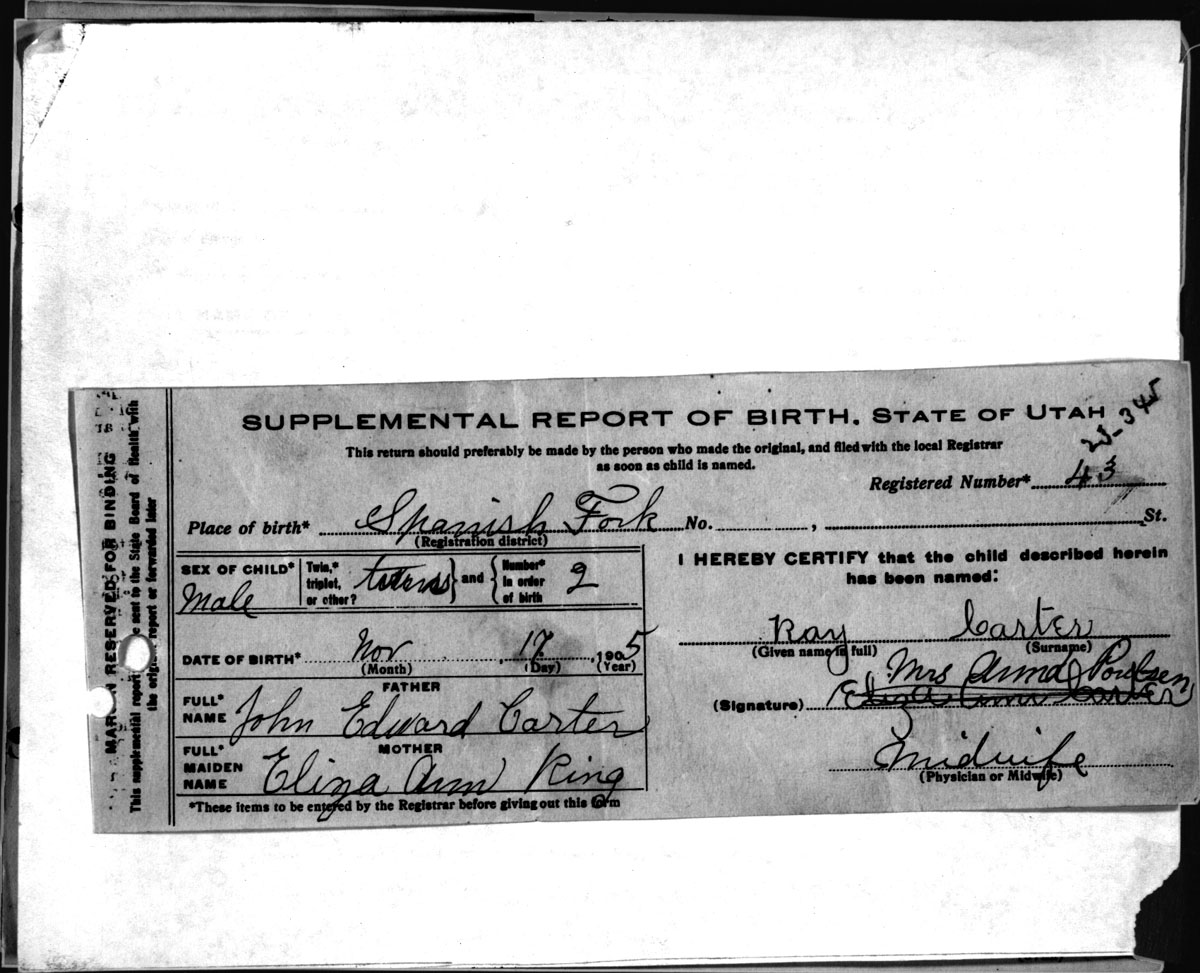 SUPPLEMENTAL REPORT OF BIRTH. STATE OF UTAH
This return should preferably be made by the person who made the original, and filed with the local Registrar
as soon as child is named.
Registered Number* 43
Place of birth* Spanish Fork No. , St.
(Registration district)
SEX OF CHILD* Male
Twin,* triplet, or other? twins and Number* in order of birth 2
DATE OF BIRTH* Nov 17, 1905
(Month) (Day) (Year)
FATHER
FULL* NAME John Edward Carter
MOTHER
FULL* MAIDEN NAME Eliza Ann King
*These items to be entered by the Registrar before giving out this form
I HEREBY CERTIFY that the child described herein
has been named:
Ray Carter
(Given name in full) (Surname)
Mrs Anna Poulsen
(Signature) Eliza Ann Carter
Midwife
(Physician or Midwife)
MARGIN RESERVED FOR BINDING
This supplemental report be sent to the State Board of Health with
the original report or forwarded later